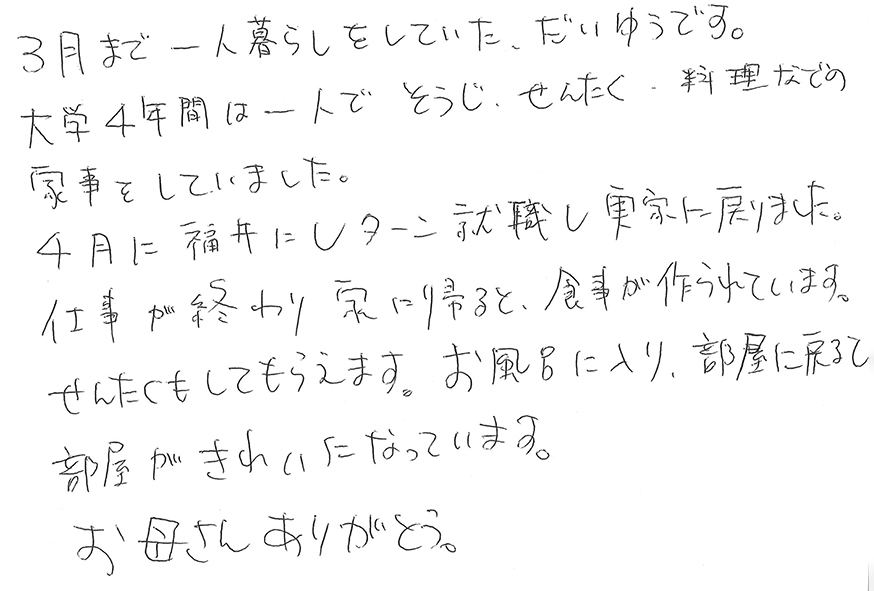 3月まで一人暮らしをしていた、だいゆうです。
大学4年間は一人で そうじ、せんたく、料理などの
家事をしていました。
4月に福井にUターン就職し実家に戻りました。
仕事が終わり家に帰ると、食事が作られています。
せんたくもしてもらえます。お風呂に入り、部屋に戻ると
部屋がきれいになっています。
お母さんありがとう。